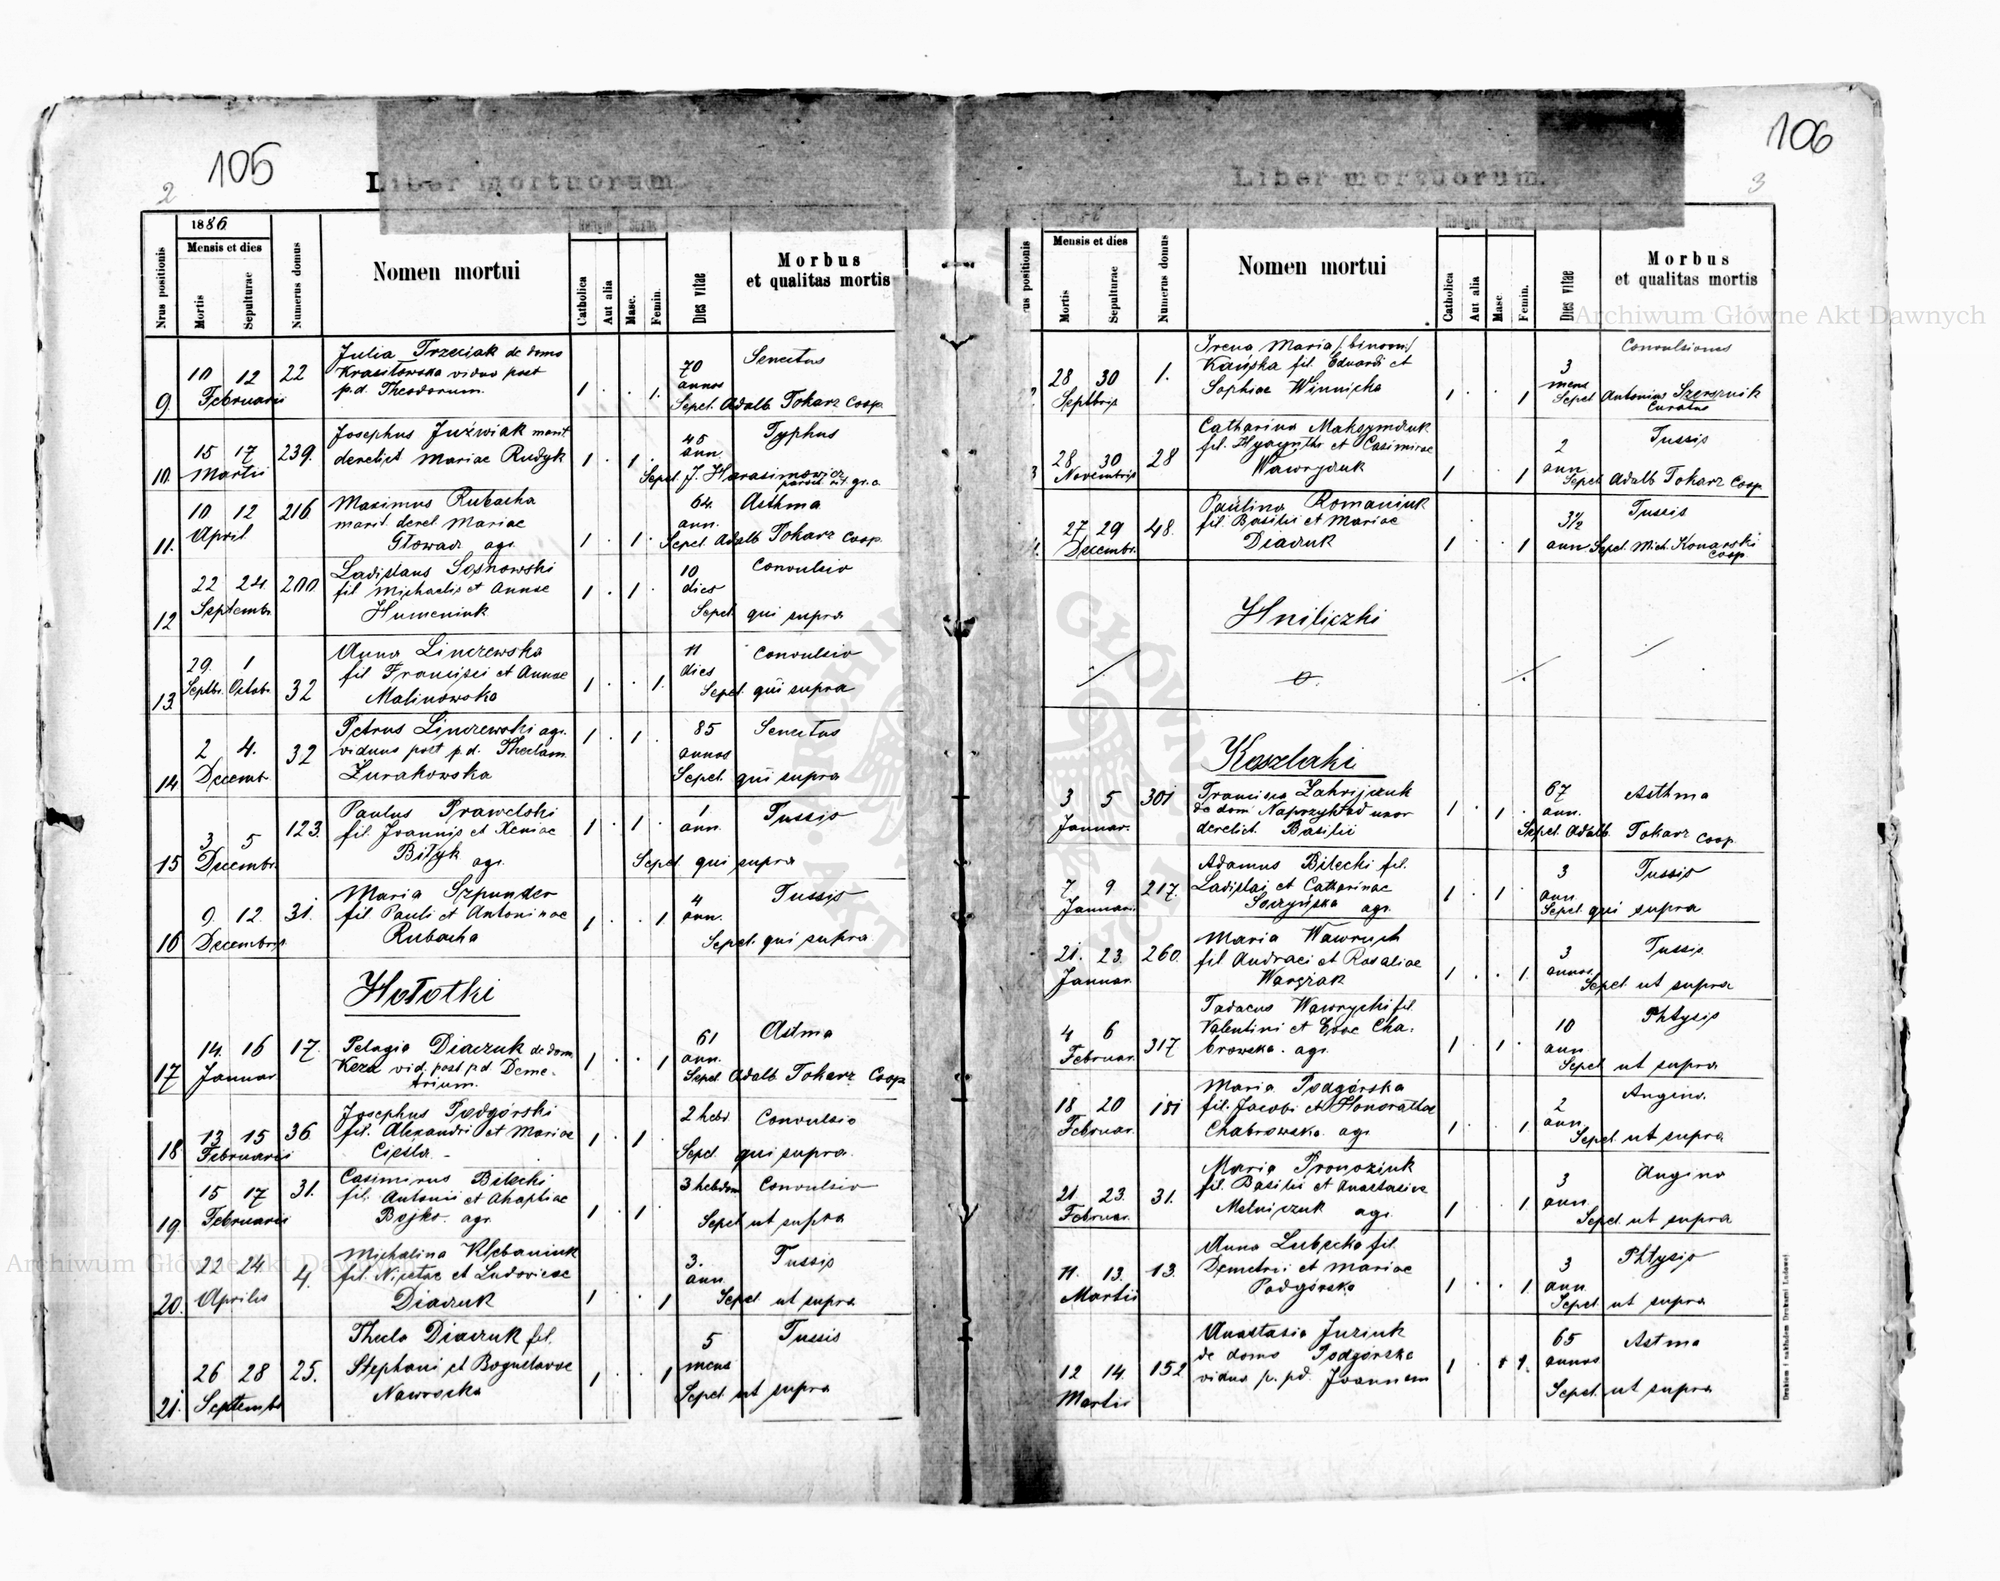 105
2
Liber mortuorum
1886
Nrus positionis
Mensis et dies
Mortis
Sepulturae
Numerus domus
Nomen mortui
Religio
Catholica
Aut alia
Sexus
Masc.
Femin.
Dies vitae
Morbus
et qualitas mortis
Julia Trzeciak de domo
70
Senectus
10 12 22
Krasitowska vidua post
annos
p.d. Theodorum.
1 . . 1.
9. Februarii
Sepel. Adalb. Tokarz Coop.
Josephus Juźwiak marit
45
Typhus
15 17 239.
derelict Mariae Rudyk
1 . 1 .
ann.
10. Martii
Sepel. J. Harasimowicz
paroch rit. gr. c.
10 12 216
Maximus Rubacha
64.
Asthma
marit. derel Mariae
ann.
11. April
Głowacz agr.
1 . 1 .
Sepel. Adalb Tokarz Coop.
Ladislaus Sosnowski
10
Convulsio
22 24. 200
fil Michaelis et Annae
1 . 1 .
dies
12 Septembr.
Humeniuk
Sepel. qui supra
Anna Linczewska
11
Convulsio
29. 1
fil Francisci et Annae
dies
13 Septbr. Octobr. 32
Malinowska
1 . . 1.
Sepel. qui supra
Petrus Linczewski agr.
1 . 1 .
85
Senectus
2 4. 32
viduus post p.d. Theclam
annos
14 Decembr.
Żurakowska
Sepel. qui supra
Paulus Prawelski
1
Tussis
3 5 123.
fil. Joannis et Xeniae
1 . 1 .
ann.
15 Decembr.
Bilyk agr.
Sepel qui supra
Maria Szpunder
4
Tussis
9. 12. 31.
fil Pauli et Antoninae
1 . . 1
ann.
16 Decembris
Rubacha
Sepel. qui supra
Hołotki
61
Astma
14. 16 17.
Pelagia Diaczuk de dom
ann.
17 Januar
Keza vid. post p.d. Deme-
1 . . 1
Sepel. Adalb. Tokarz Coop
trium.
Josephus Podgórski
2 hebd.
Convulsio
13 15 36
fil. Alexandri et Mariae
1 . 1
18 Februarii
Cieśla
Sepel. qui supra.
Casimirus Bilecki
3 hebdom
Convulsio
15 17 31.
fil. Antonii et Ahaphiae
19 Februarii
Bojko. agr.
1 . 1
Sepel ut supra
Michalina Klebaniuk
3.
Tussis
22 24 4.
fil. Nicetae et Ludovicae
ann.
20. Aprilis
Diaczuk
1 . . 1
Sepel. ut supra
Thecla Diaczuk fil.
5
Tussis
26 28 25.
Stephani et Boguslavae
1 . . 1
mens
21. Septembr
Nawrocka
Sepel ut supra
106
3
Liber mortuorum.
us positionis
Mensis et dies
Mortis
Sepulturae
Numerus domus
Nomen mortui
Religio
Catholica
Aut alia
Sexus
Masc.
Femin.
Dies vitae
Morbus
et qualitas mortis
Irena Maria /:binom:/
3
Convulsiones
28 30 1.
Kańska fil. Eduardi et
mens
Septbris
Sophiae Winnicka
1 . . 1
Sepel Antonius Szersznik
Curatus
Catharina Maksymczuk
2
Tussis
28 30 28
fil. Hyacynthi et Casimirae
ann
Novembris
Wawryczuk
1 . . 1
Sepel Adalb Tokarz Coop
Paulina Romaniuk
3½
Tussis
27 29 48.
fil. Basilii et Mariae
Decembr.
Diaczuk
1 . . 1
ann. Sepel. Mich. Konarski
Coop
Hniliczki
Koszlaki
67
Asthma
3 5 301
Francisca Zahrijczuk
1 . 1 .
ann.
Januar.
de dom. Naprzykład uxor
Sepel. Adalb. Tokarz Coop.
derelict. Basilii
Adamus Bilecki fil.
3
Tussis
7 9 217.
Ladislai et Catharinae
1 . 1 .
ann.
Januari.
Soczyńska agr.
Sepel. qui supra
Maria Wawruch
3
Tussis
21. 23. 260.
fil Andreci et Rosaliae
annos
Januar.
1 . . 1.
Sepel. ut supra
Tadaeus Wawrychi fil.
10
Phtysis
4 6 317
Valentini et Evae Cha-
ann
Februar.
browska. agr.
1 . 1 .
Sepel ut supra
Maria Podgórska
2
Angina.
18 20 181
fil. Jacobi et Honorathae
ann.
Februar.
Chabrowska. agr.
1 . . 1
Sepel. ut supra
Maria Pronoziuk
3
Angina
21 23. 31.
fil. Basilii et Anastasiae
ann.
Februar.
Melniczuk agr.
1 . . 1.
Sepel. ut supra
Anna Lubecka fil.
3
Phtysis
11. 13. 13.
Demetrii et Mariae
ann.
Martii
Podgórska
1 . . 1.
Sepel. ut supra
Anastasia Juziuk
65
Astma
12 14. 152
de domo Podgórska
annos
Martii
vidua p. pd. Joannem
Sepel. ut supra
Drukiem i nakładem Drukarni Ludowej
Archiwum Główne Akt Dawnych
Archiwum Główne Akt Dawnych
ARCHIWUM GŁÓWNE AKT DAWNYCH